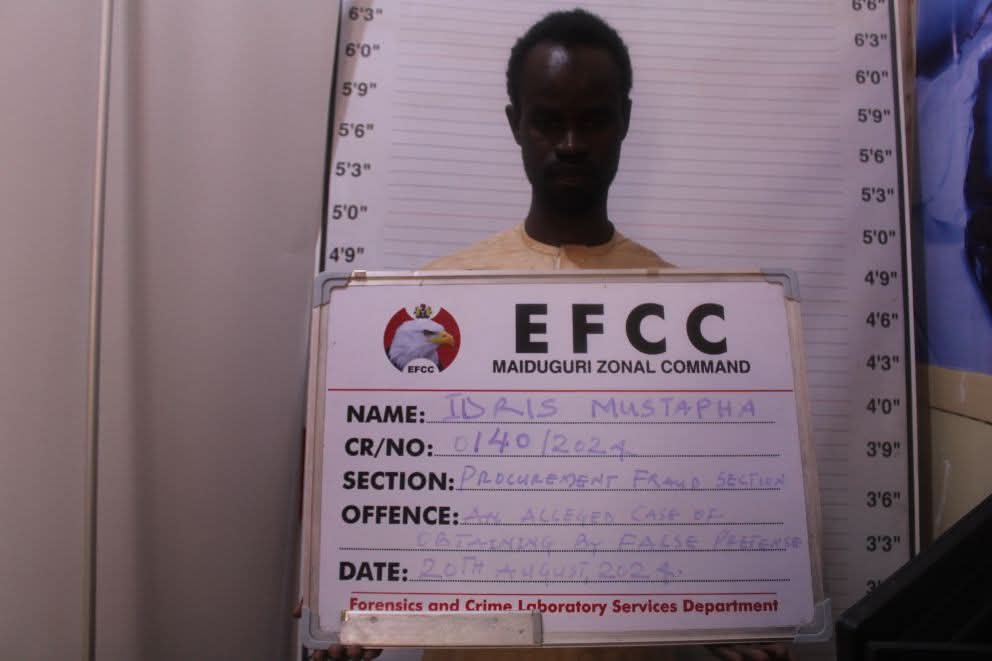 6'3"
6'0"
5'9"
5'6"
5'3"
5'0"
4'9"
6'6"
6'3"
6'0"
5'9"
5'6"
5'3"
5'0"
4'9"
4'6"
4'3"
4'0"
3'9"
3'6"
3'3"
EFCC
EFCC
MAIDUGURI ZONAL COMMAND
NAME: IDRIS MUSTAPHA
CR/NO: 0140/2024
SECTION: PROCUREMENT FRAUD SECTION
OFFENCE: AN ALLEGED CASE OF
OBTAINING BY FALSE PRETENSE
DATE: 20TH AUGUST, 2024.
Forensics and Crime Laboratory Services Department